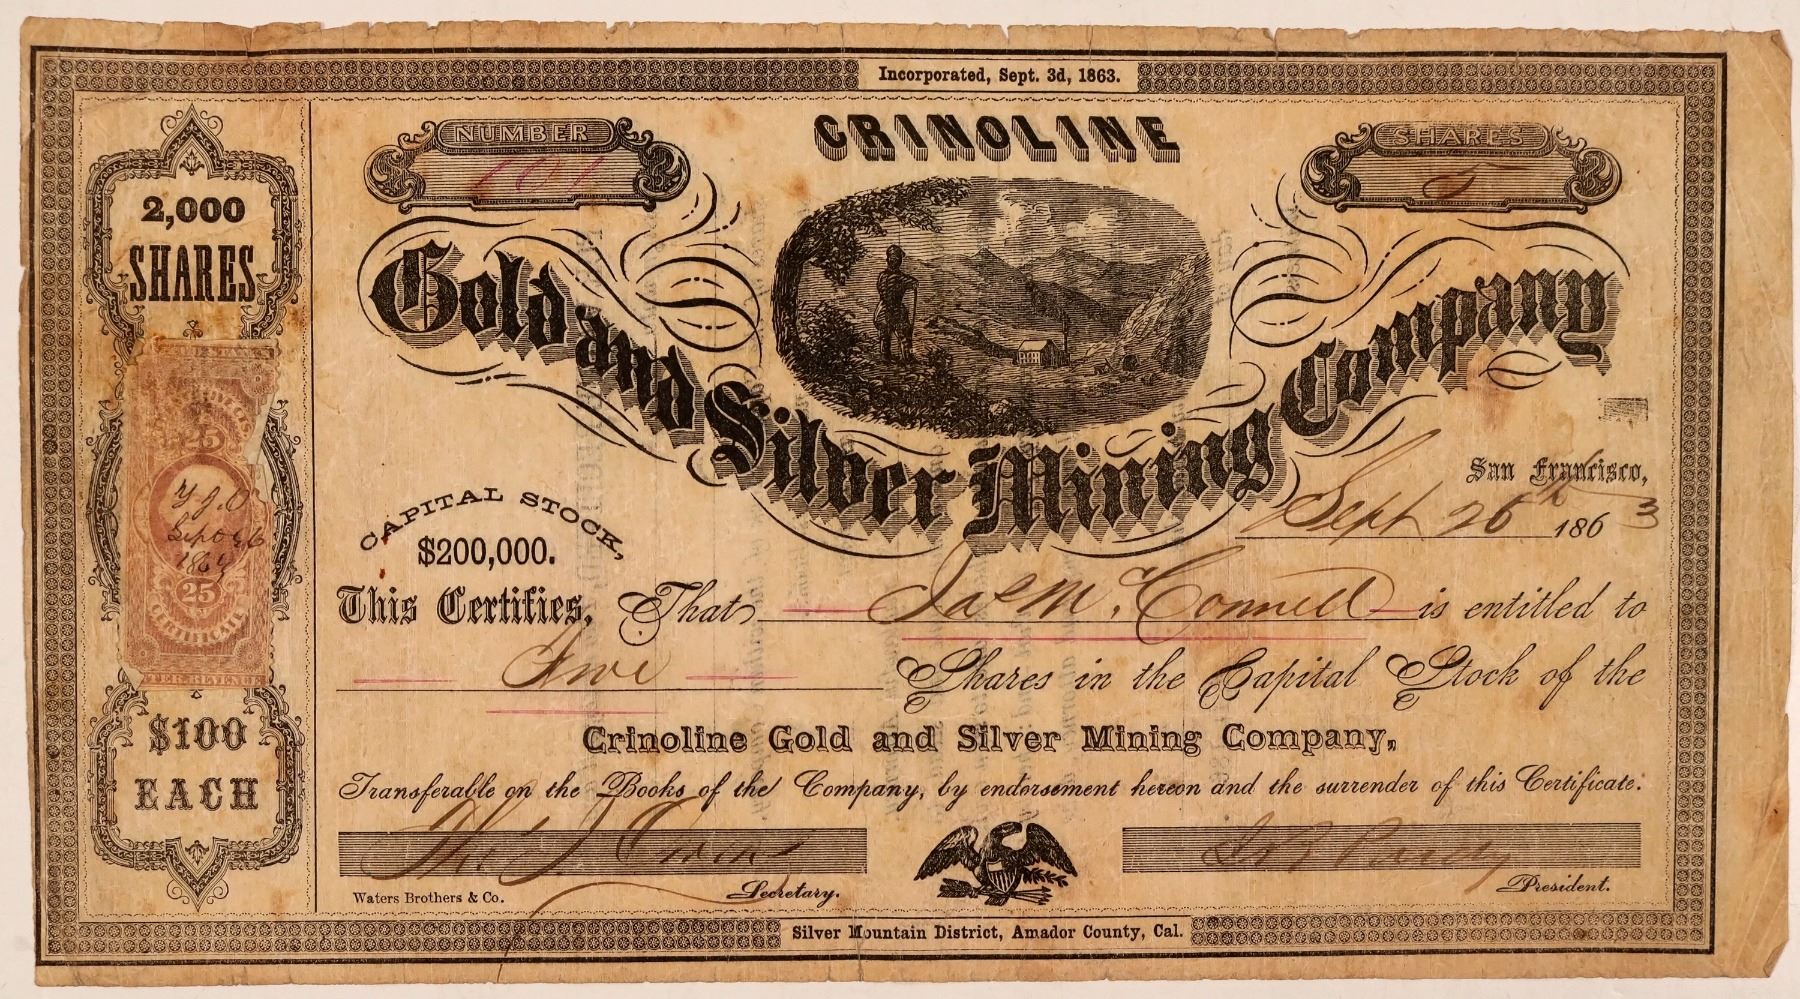 Incorporated, Sept. 3d, 1863.
NUMBER
101
CRINOLINE
SHARES
5
Gold and Silver Mining Company
2,000
SHARES
$100
EACH
25
Sept 26
25
CERTIFICATE
INTER. REVENUE
San Francisco,
Sept 26th 1863
CAPITAL STOCK,
$200,000.
This Certifies, That Jas McConnell is entitled to
Five Shares in the Capital Stock of the
Crinoline Gold and Silver Mining Company,
Transferable on the Books of the Company, by endorsement hereon and the surrender of this Certificate.
Waters Brothers & Co.
Secretary.
President.
Silver Mountain District, Amador County, Cal.